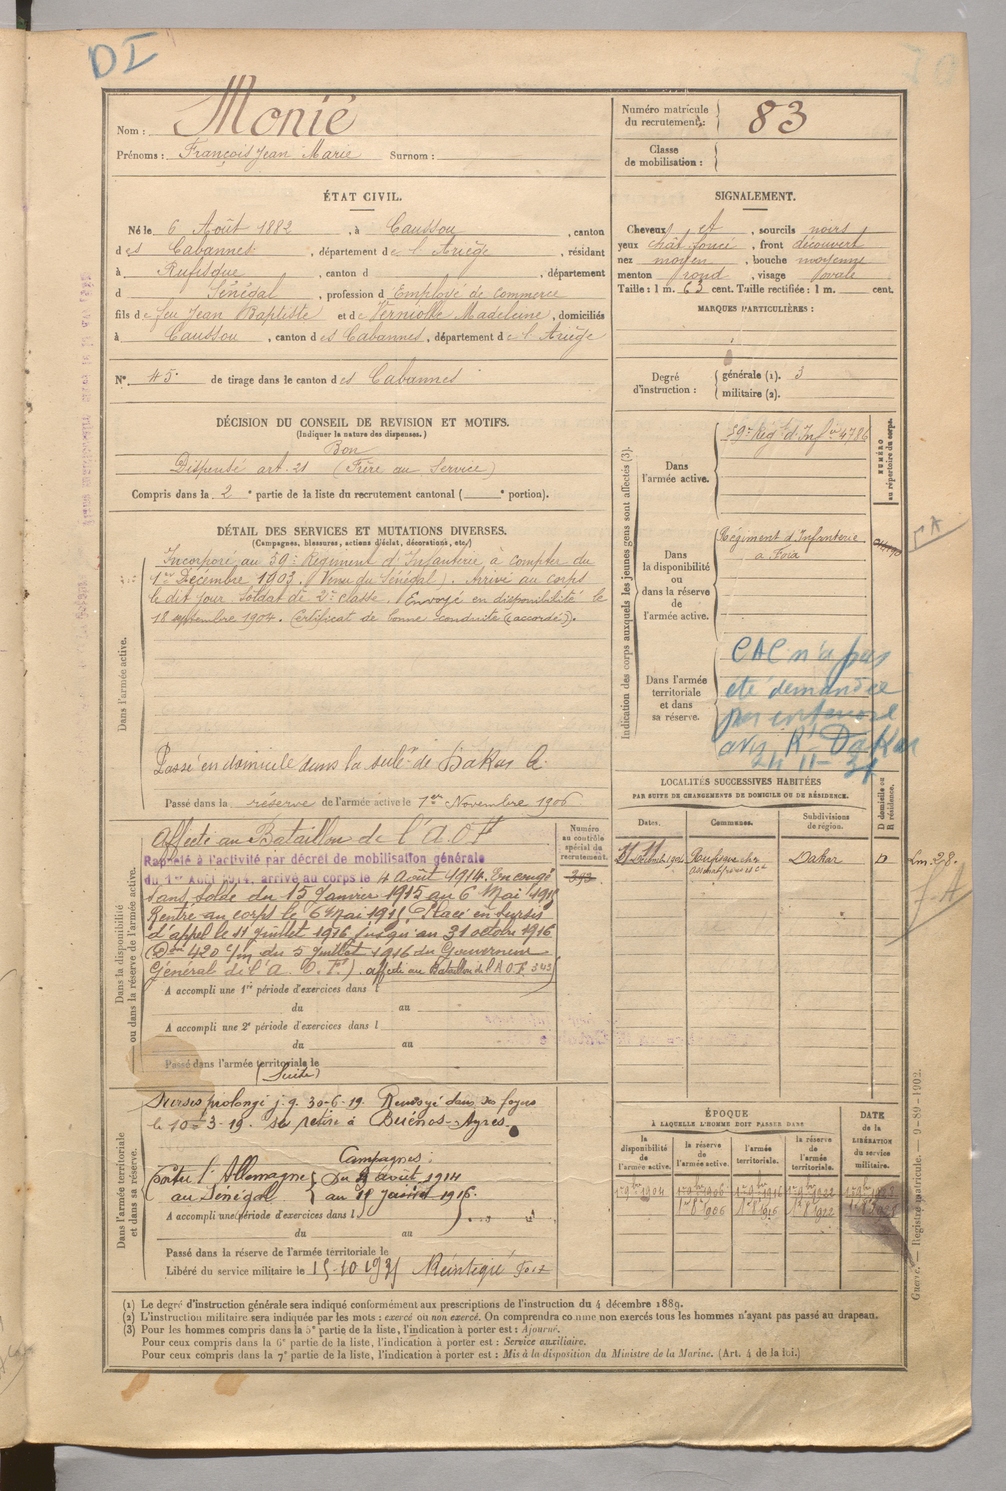 DI
Nom : Monié
Prénoms : François Jean Marie Surnom :
Numéro matricule du recrutement : 83
Classe de mobilisation :
ÉTAT CIVIL.
Né le 6 Août 1882, à Caussou, canton
des Cabannes, département de l'Ariège, résidant
à Rufisque, canton d , département
d Sénégal, profession d'Employé de commerce
fils de feu Jean Baptiste et de Verniolle Madeleine, domiciliés
à Caussou, canton des Cabannes, département de l'Ariège
N° 45 de tirage dans le canton des Cabannes
SIGNALEMENT.
Cheveux et , sourcils noirs
yeux chât. foncé, front découvert
nez moyen, bouche moyenne
menton rond, visage ovale
Taille : 1 m. 63 cent. Taille rectifiée : 1 m. cent.
MARQUES PARTICULIÈRES :
Degré d'instruction : générale (1). 3
militaire (2).
DÉCISION DU CONSEIL DE REVISION ET MOTIFS.
(Indiquer la nature des dispenses.)
Bon
Dispensé art. 21 (Frère au Service)
Compris dans la 2e partie de la liste du recrutement cantonal ( e portion).
DÉTAIL DES SERVICES ET MUTATIONS DIVERSES.
(Campagnes, blessures, actions d'éclat, décorations, etc.)
Dans l'armée active.
Incorporé au 59e Régiment d'Infanterie à compter du
1er Décembre 1903. (Venu du Sénégal). Arrivé au corps
le dit jour Soldat de 2e classe. Envoyé en disponibilité le
18 septembre 1904. Certificat de bonne conduite (accordé).
Passé en domicile dans la subd.on de Dakar
Passé dans la réserve de l'armée active le 1er Novembre 1906
Indication des corps auxquels les jeunes gens sont affectés (3).
NUMÉRO au répertoire du corps.
Dans l'armée active.
59e Régt d'Infie 4786
Dans la disponibilité ou dans la réserve de l'armée active.
Régiment d'Infanterie
à Foix
Dans l'armée territoriale et dans sa réserve.
CAC n'a pas
été demandée
avis Rt Dakar
24-11-31
LOCALITÉS SUCCESSIVES HABITÉES
PAR SUITE DE CHANGEMENTS DE DOMICILE OU DE RÉSIDENCE.
Dates. Communes. Subdivisions de région. D domicile ou R résidence.
Rufisque Dakar D
Dans la disponibilité ou dans la réserve de l'armée active.
Numéro au contrôle spécial du recrutement.
393
Affecté au Bataillon de l'A.O.F
Rappelé à l'activité par décret de mobilisation générale
du 1er Août 1914, arrivé au corps le 4 Août 1914. En congé
sans solde du 15 Janvier 1915 au 6 Mai 1915
Rentré au corps le 6 Mai 1915. Placé en sursis
d'appel le 11 Juillet 1916 jusqu'au 31 octobre 1916
(Don 420 c/m du 5 Juillet 1916 du Gouverneur
Général de l'A.O.F.) affecté au Bataillon de l'A.O.F.
A accompli une 1re période d'exercices dans l
du au
A accompli une 2e période d'exercices dans l
du au
Passé dans l'armée territoriale le
(Suite)
Dans l'armée territoriale et dans sa réserve.
Sursis prolongé j.q. 30-6-19. Renvoyé dans ses foyers
le 10-3-19. se retire à Buénos-Ayres.
Campagnes :
Contre l'Allemagne du 4 août 1914
au Sénégal au 11 juillet 1916.
A accompli une période d'exercices dans l
du au
Passé dans la réserve de l'armée territoriale le
Libéré du service militaire le 15-10-1931 Réintégré Foix
ÉPOQUE
À LAQUELLE L'HOMME DOIT PASSER DANS
la disponibilité de l'armée active.
la réserve de l'armée active.
l'armée territoriale.
la réserve de l'armée territoriale.
DATE de la LIBÉRATION du service militaire.
1er 9bre 1904 1er 9bre 1906 1er 9bre 1916 1er 9bre 1922
(1) Le degré d'instruction générale sera indiqué conformément aux prescriptions de l'instruction du 4 décembre 1889.
(2) L'instruction militaire sera indiquée par les mots : exercé ou non exercé. On comprendra comme non exercés tous les hommes n'ayant pas passé au drapeau.
(3) Pour les hommes compris dans la 5e partie de la liste, l'indication à porter est : Ajourné.
Pour ceux compris dans la 6e partie de la liste, l'indication à porter est : Service auxiliaire.
Pour ceux compris dans la 7e partie de la liste, l'indication à porter est : Mis à la disposition du Ministre de la Marine. (Art. 4 de la loi.)
Guerre. — Registre matricule. — 9-89-1902.